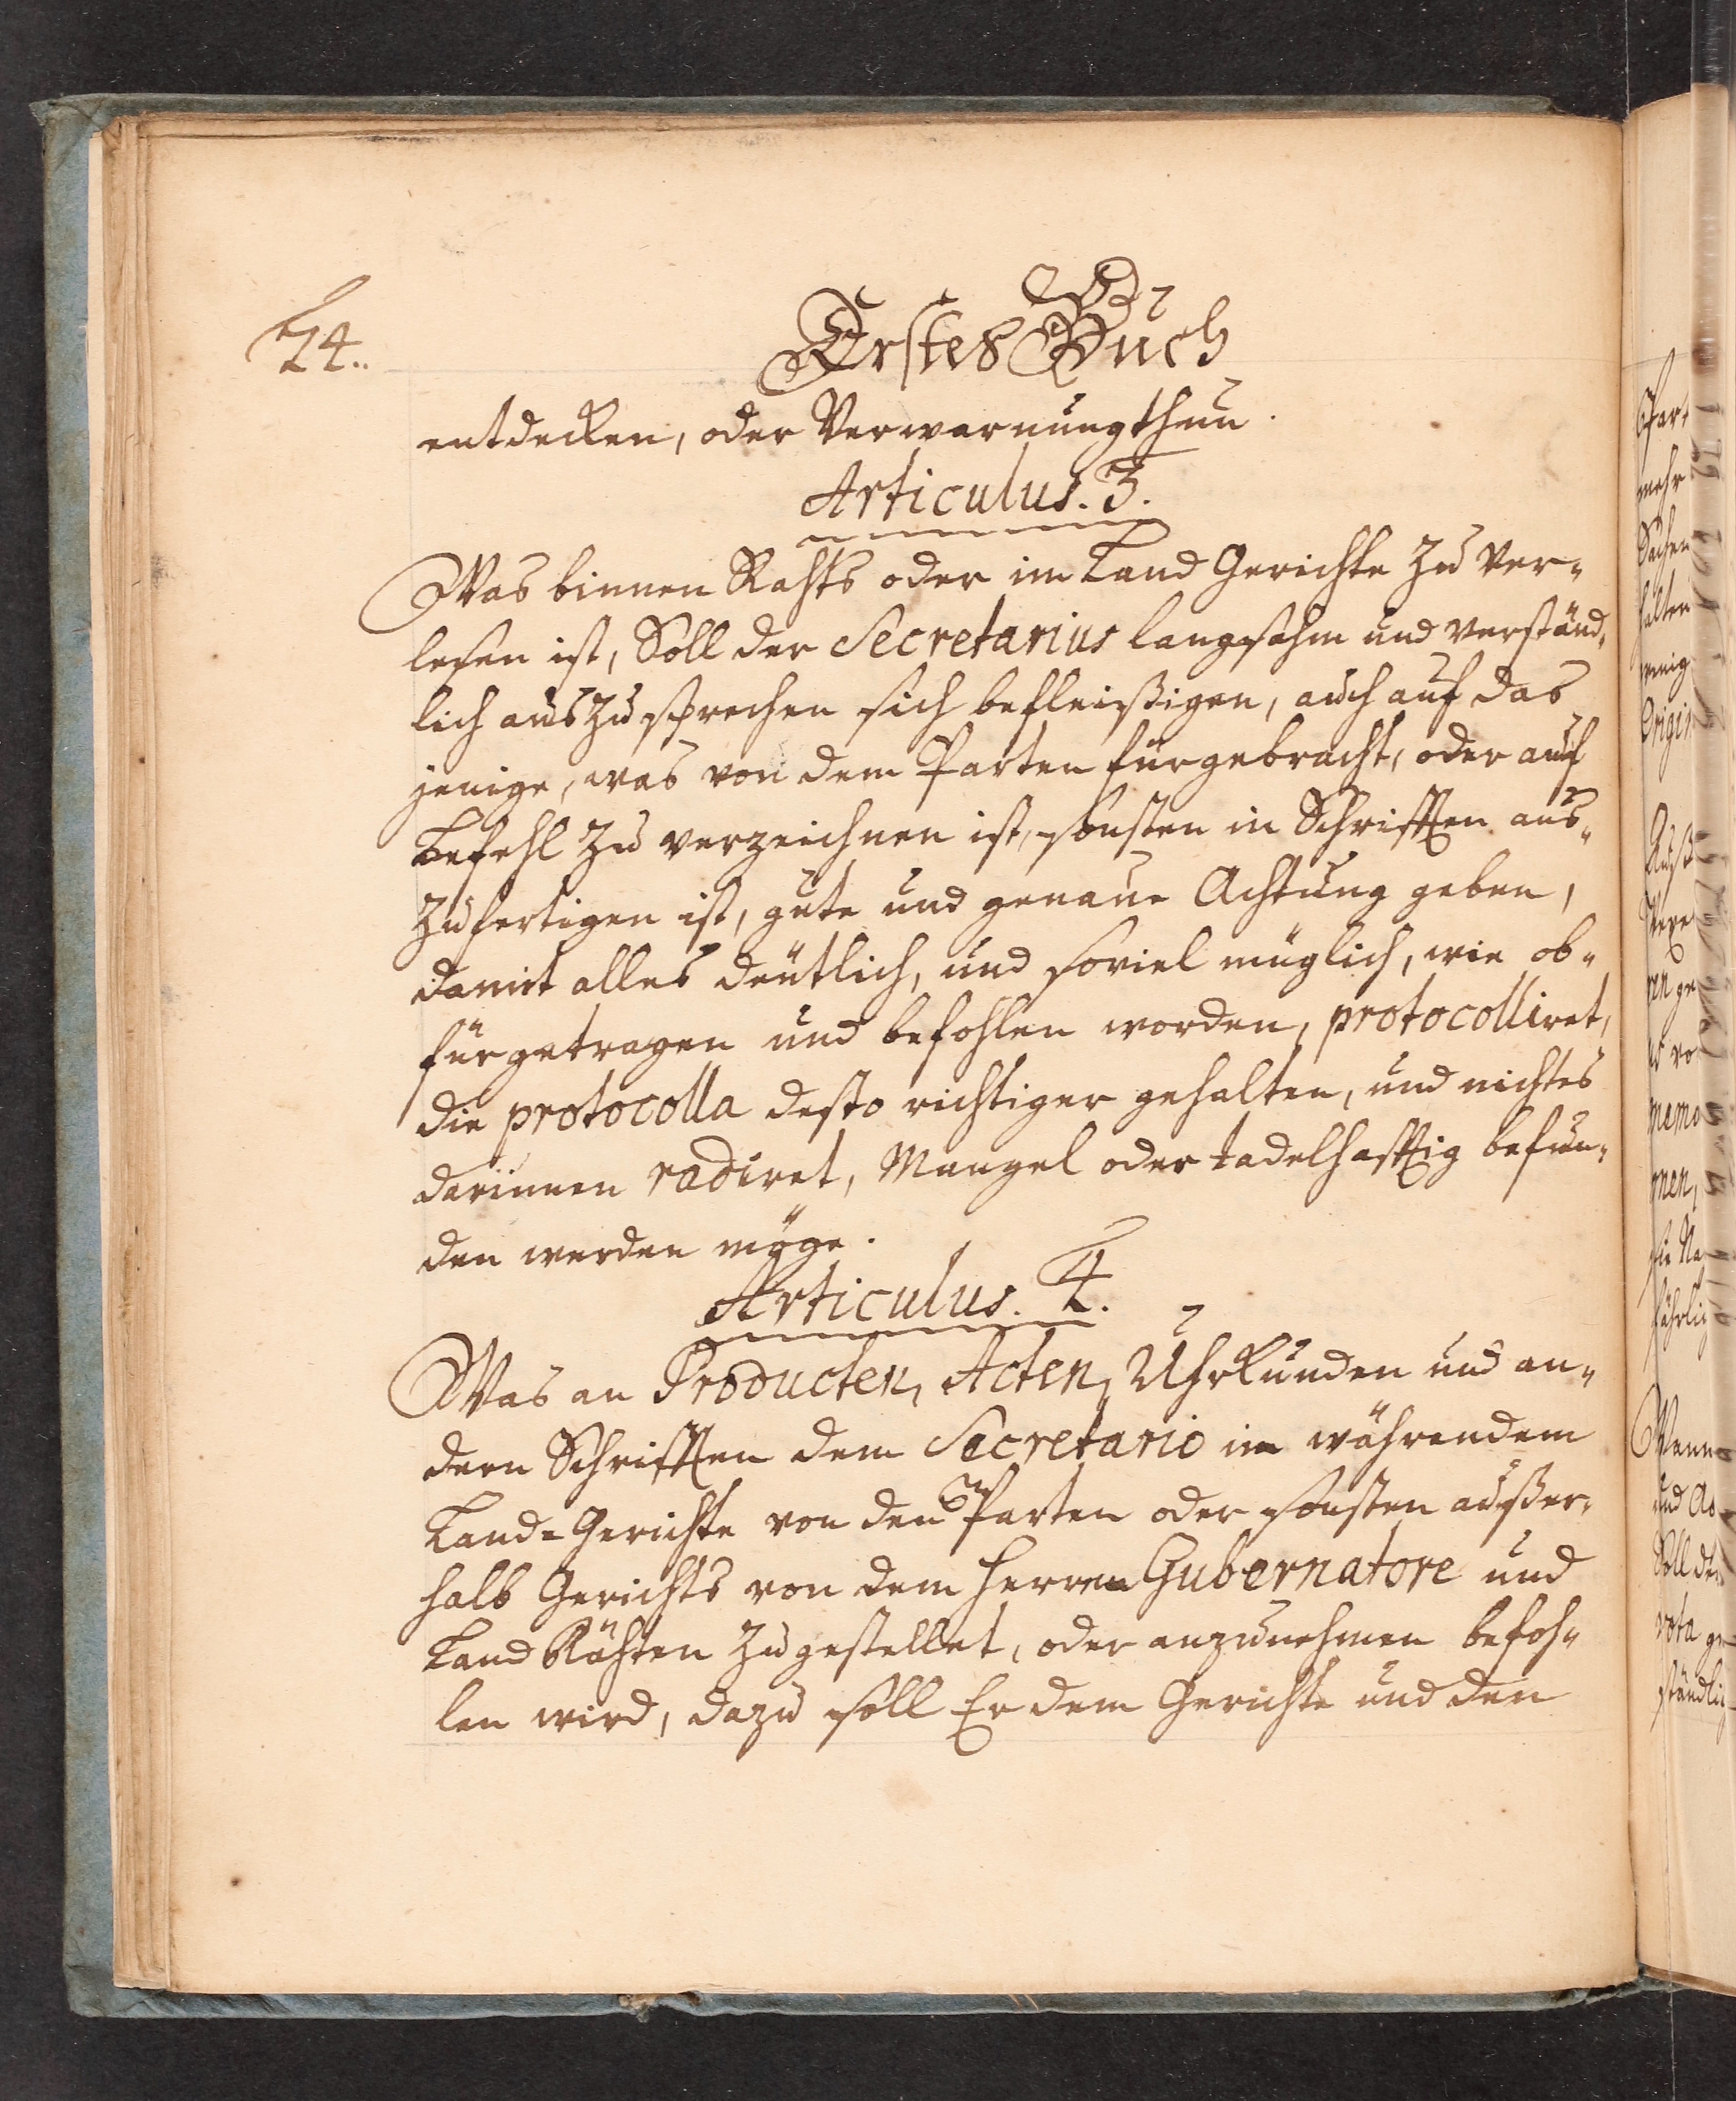 24.
Erstes Buch
entdecken, oder Verwarnung thun.
Articulus. 3.
Was binnen Rahts oder im Land Gerichte zu ver-
lesen ist, Soll der Secretarius langsahm und verständ-
lich aus zu sprechen sich befleißigen, auch auf das
jenige, was von dem Parten fürgebracht, oder auf
Befehl zu verzeichnen ist, sonsten in Schrifften aus-
zufertigen ist, gute und genaue Achtung geben,
damit alles deütlich, und soviel müglich, wie ob-
fürgetragen und befohlen worden, protocolliret,
die protocolla desto richtiger gehalten, und nichtes
darinnen radiret, Mangel oder tadelhafftig befun-
den werden möge.
Articulus. 4.
Was an Producten, Acten, Uhrkunden und an-
dern Schrifften dem Secretario in währendem
Land-Gerichte von den Parten oder sonsten außer-
halb Gerichts von dem Herren Gubernatore und
Land Rähten zugestellet, oder anzunehmen befoh-
len wird, dazu soll Er dem Gerichte und den